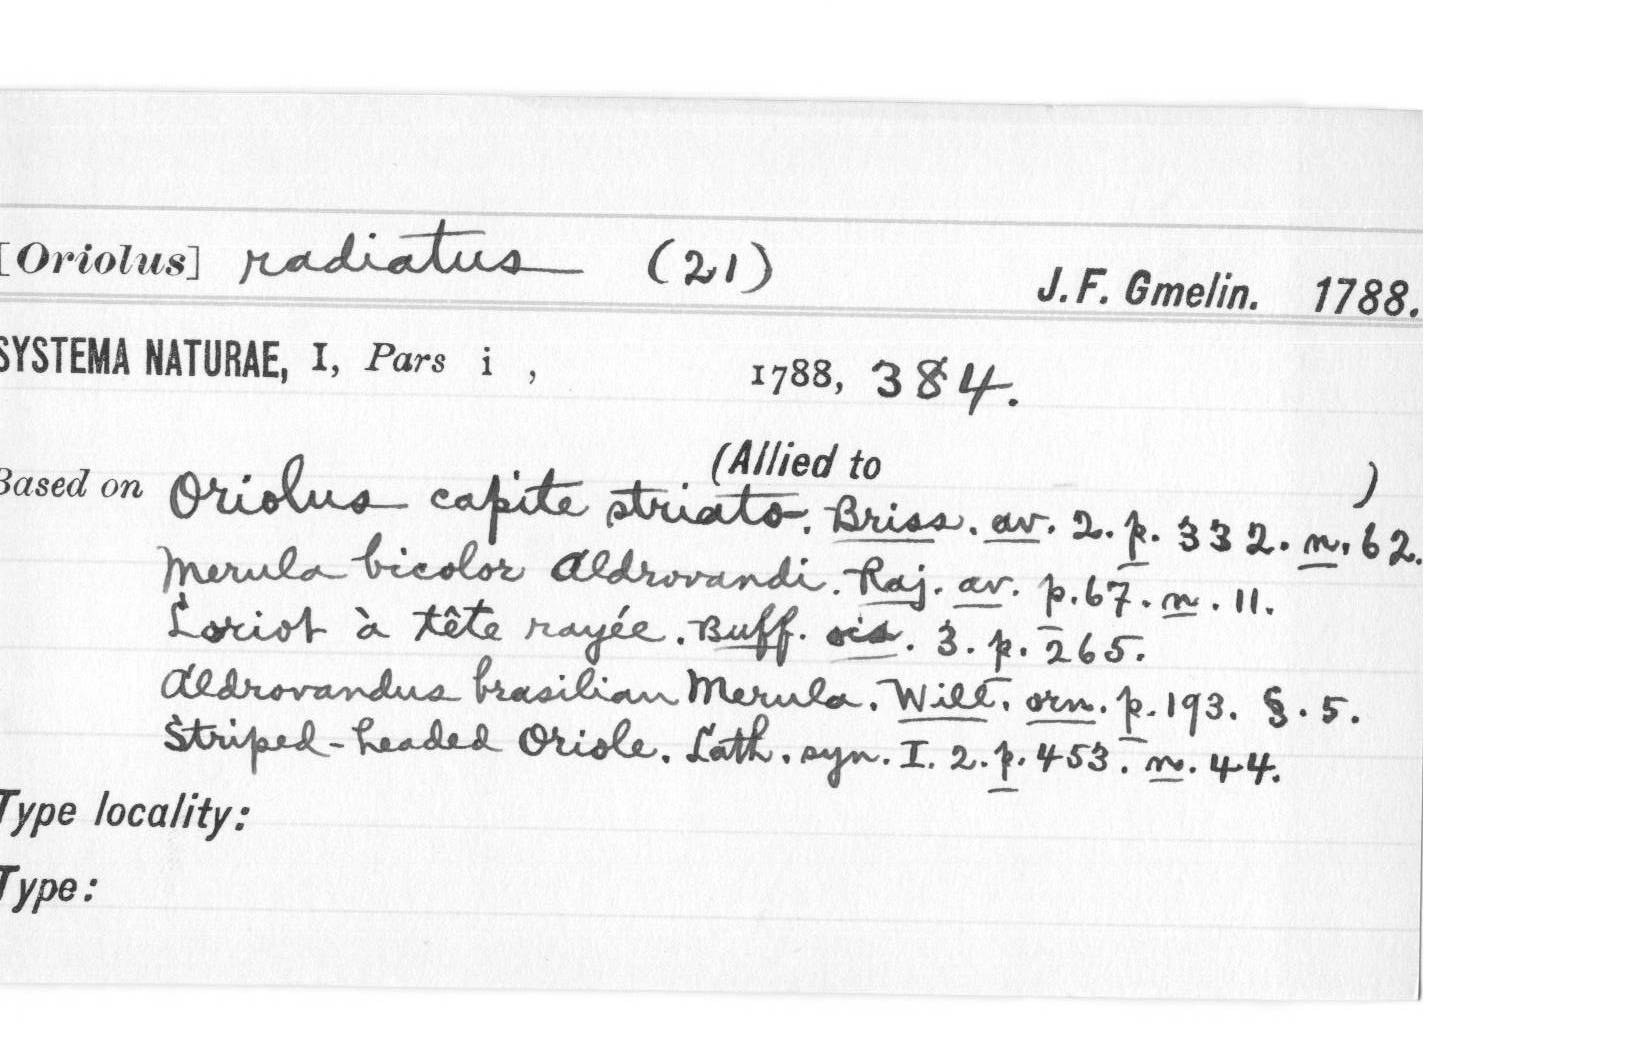 [Oriolus] radiatus (21) J. F. Gmelin. 1788.
SYSTEMA NATURAE, I, Pars i , 1788, 384.
(Allied to )
Based on Oriolus capite striato. Briss. av. 2. p. 332. n. 62.
Merula bicolor Aldrovandi. Raj. av. p. 67. n. 11.
Loriot à tête rayée. Buff. ois. 3. p. 265.
Aldrovandus brasilian Merula. Will. orn. p. 193. §. 5.
Striped-headed Oriole. Lath. syn. I. 2. p. 453. n. 44.
Type locality:
Type: